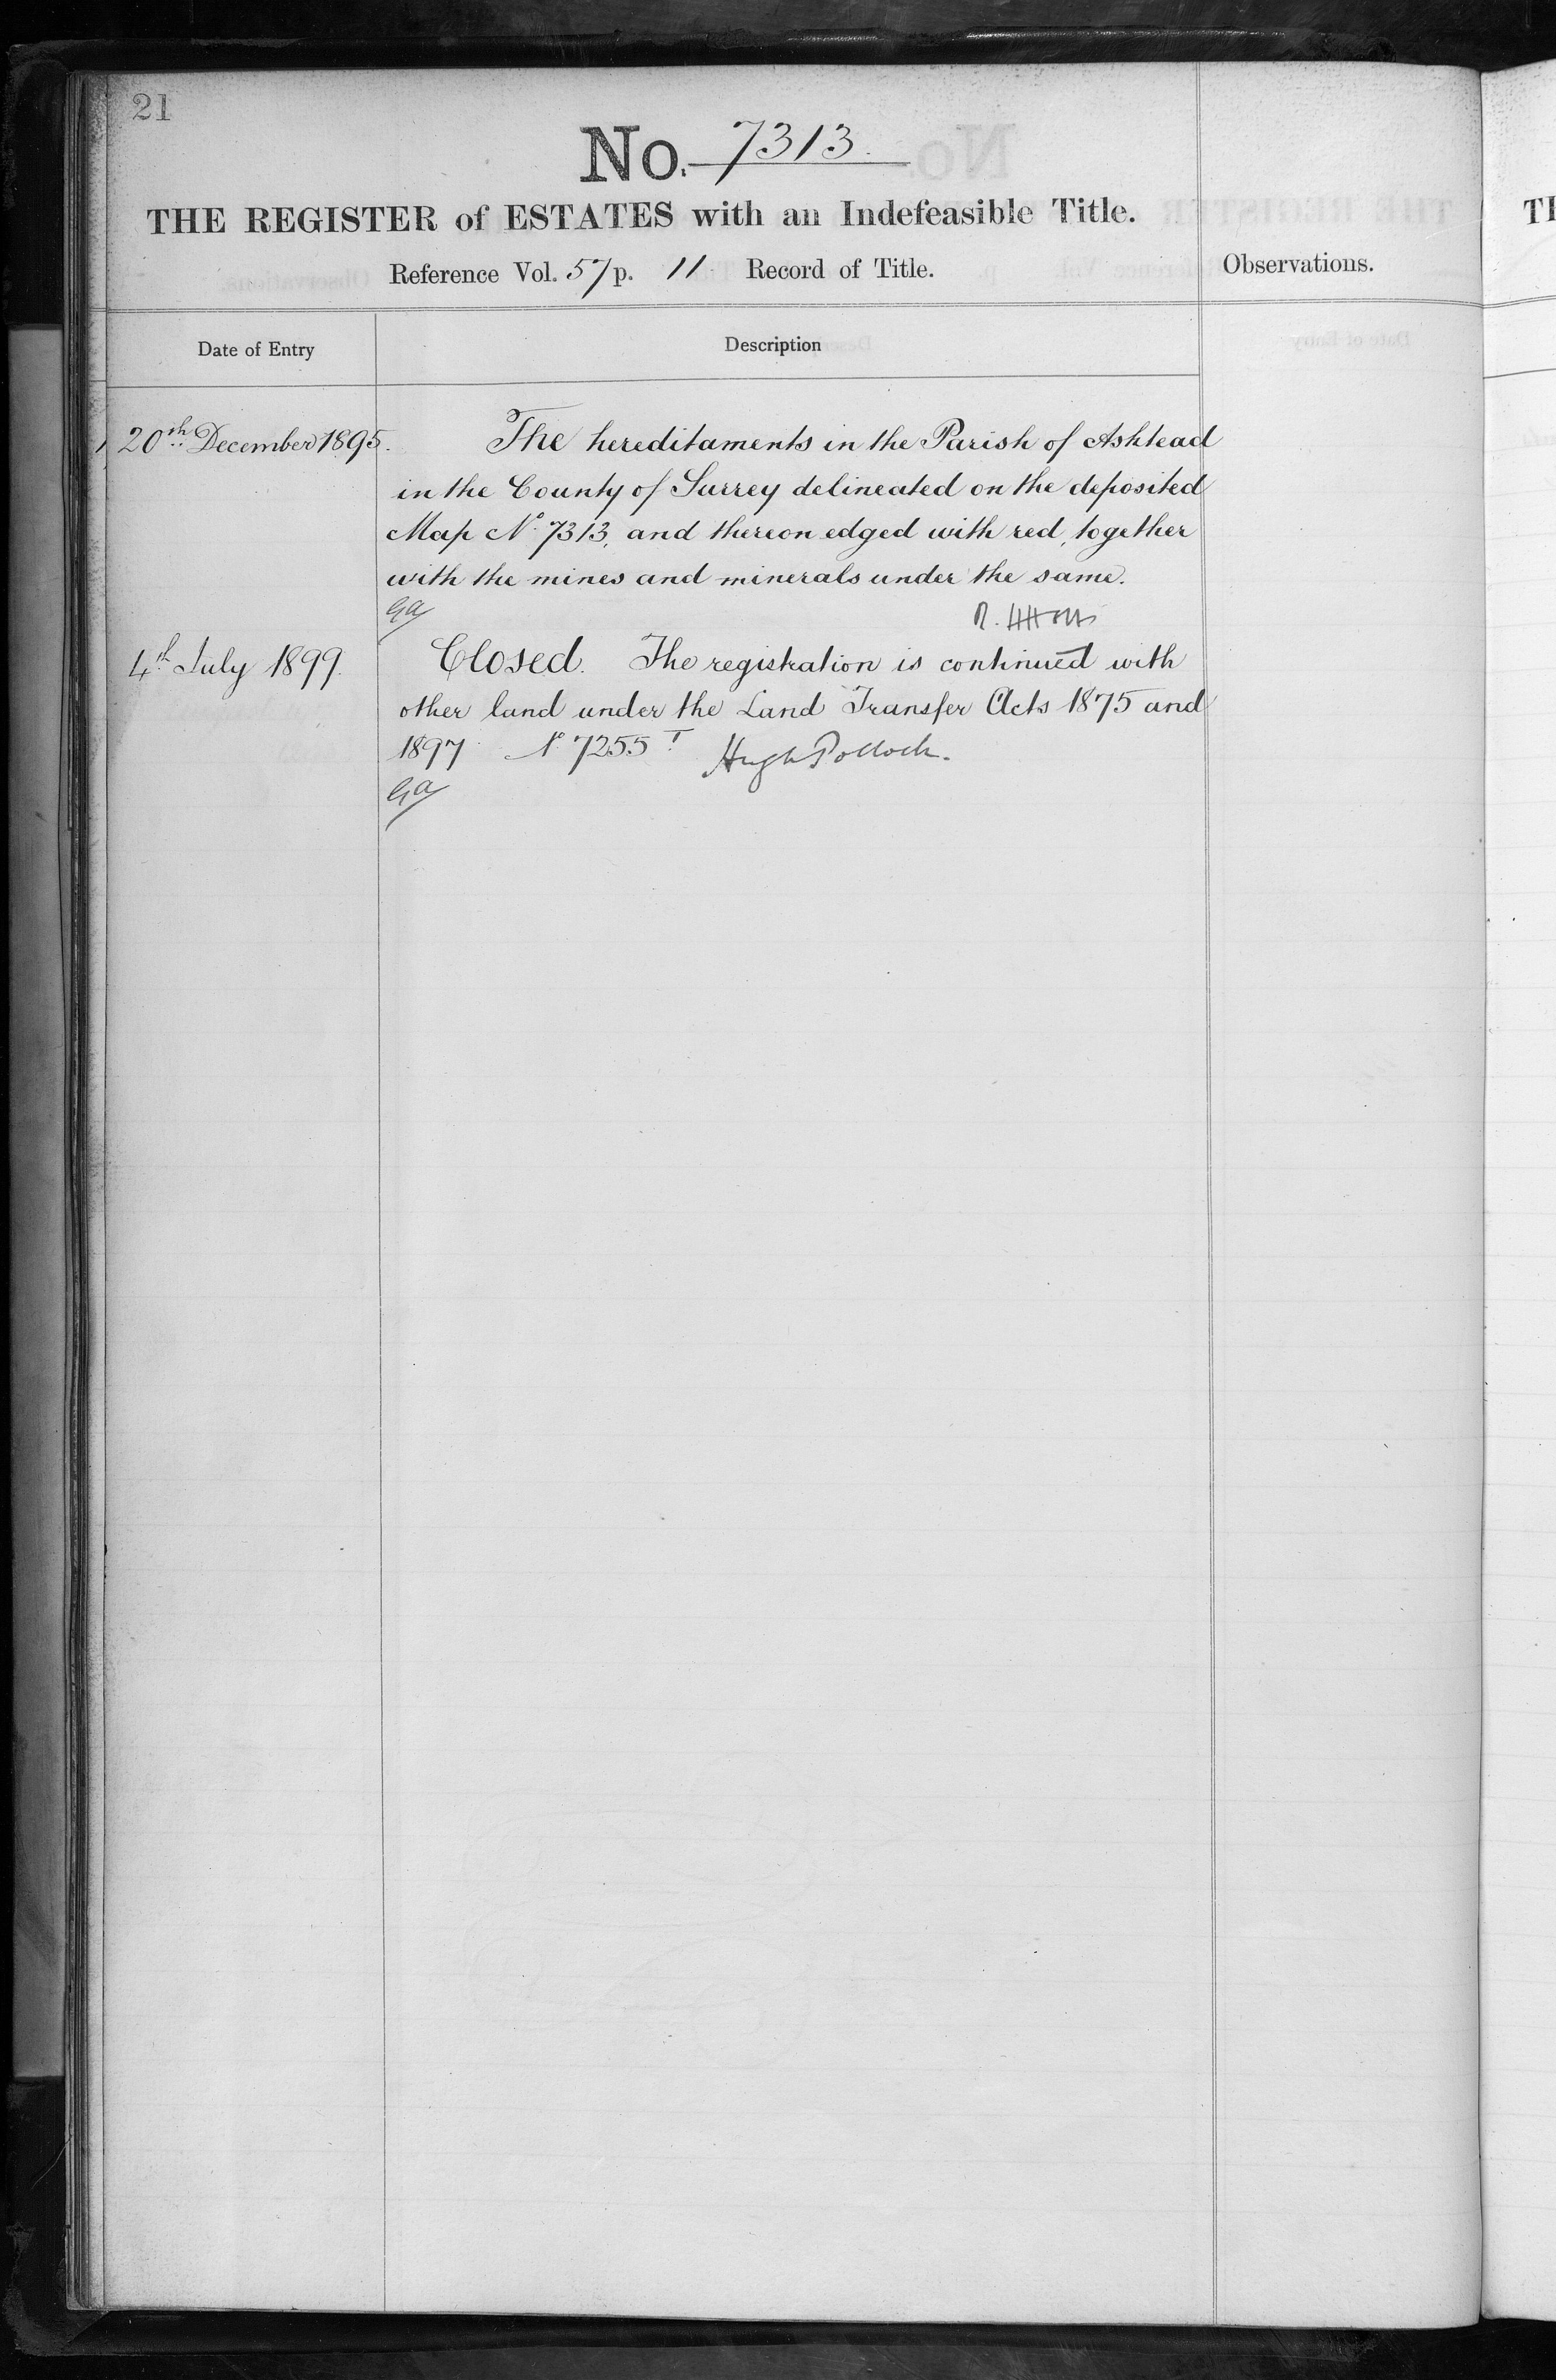 21
No. 7313.
THE REGISTER of ESTATES with an Indefeasible Title.
Reference Vol. 57 p. 11 Record of Title.
Observations.
Date of Entry
Description
1 20th December 1895. The hereditaments in the Parish of Ashtead
in the County of Surrey delineated on the deposited
Map No. 7313, and thereon edged with red, together
with the mines and minerals under the same.
4th July 1899. Closed. The registration is continued with
other land under the Land Transfer Acts 1875 and
1897 No 7255 T Hugh Pollock.